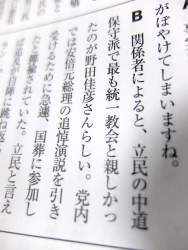 がぼやけてしまいますね。
B 関係者によると、立民の中道
保守派で最も統一教会と親しかっ
たのが野田佳彦さんらしい。党内
では安倍元総理の追悼演説を引き
受けるために急遽、国葬に参加し
たと揶揄されていた。立民と言え